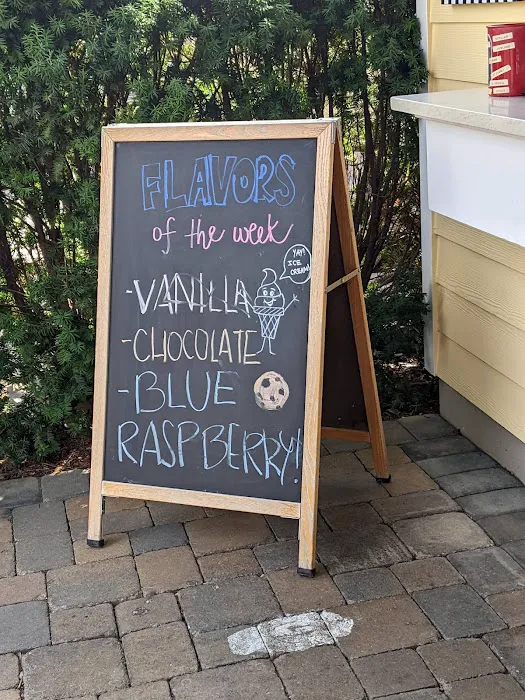 FLAVORS
of the week
YAY!
ICE
CREAM!
-VANILLA
-CHOCOLATE
-BLUE
RASPBERRY!